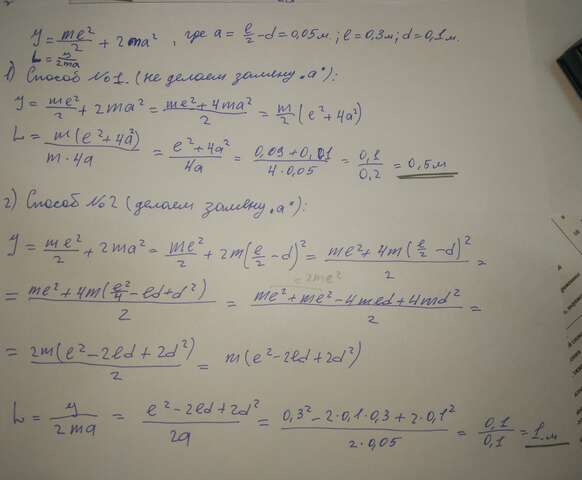 y = mℓ²/2 + 2ma², где a = ℓ/2 - d = 0,05м.; ℓ = 0,3м; d = 0,1м.
L = y/2ma
1) Способ №1. (не делаем замену "a"):
y = mℓ²/2 + 2ma² = (mℓ² + 4ma²)/2 = m/2 (ℓ² + 4a²)
L = m(ℓ² + 4a²)/(m·4a) = (ℓ² + 4a²)/4a = (0,09 + 0,01)/(4·0,05) = 0,1/0,2 = 0,5м
2) Способ №2 (делаем замену "a"):
y = mℓ²/2 + 2ma² = mℓ²/2 + 2m(ℓ/2 - d)² = (mℓ² + 4m(ℓ/2 - d)²)/2 =
= 2mℓ²
= (mℓ² + 4m(ℓ²/4 - ℓd + d²))/2 = (mℓ² + mℓ² - 4mℓd + 4md²)/2 =
= 2m(ℓ² - 2ℓd + 2d²)/2 = m(ℓ² - 2ℓd + 2d²)
L = y/2ma = (ℓ² - 2ℓd + 2d²)/2a = (0,3² - 2·0,1·0,3 + 2·0,1²)/(2·0,05) = 0,1/0,1 = 1.м